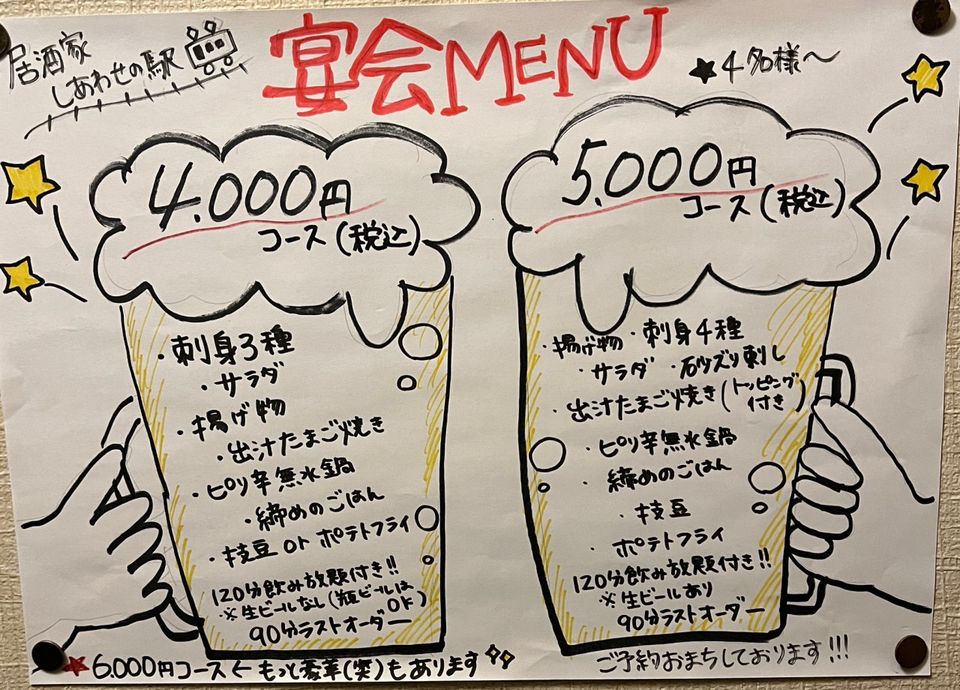 居酒家
しあわせの駅
宴会MENU
★4名様〜
4.000円
コース(税込)
・刺身3種
・サラダ
・揚げ物
・出汁たまご焼き
・ピリ辛無水鍋
・締めのごはん
・枝豆 or ポテトフライ
120分飲み放題付き!!
※生ビールなし(瓶ビールはOK)
90分ラストオーダー
5.000円
コース(税込)
・揚げ物 ・刺身4種
・サラダ ・砂ズリ刺し
・出汁たまご焼き(トッピング付き)
・ピリ辛無水鍋
・締めのごはん
・枝豆
・ポテトフライ
120分飲み放題付き!!
※生ビールあり
90分ラストオーダー
★6.000円コース←もっと豪華(笑)もあります
ご予約おまちしております!!!